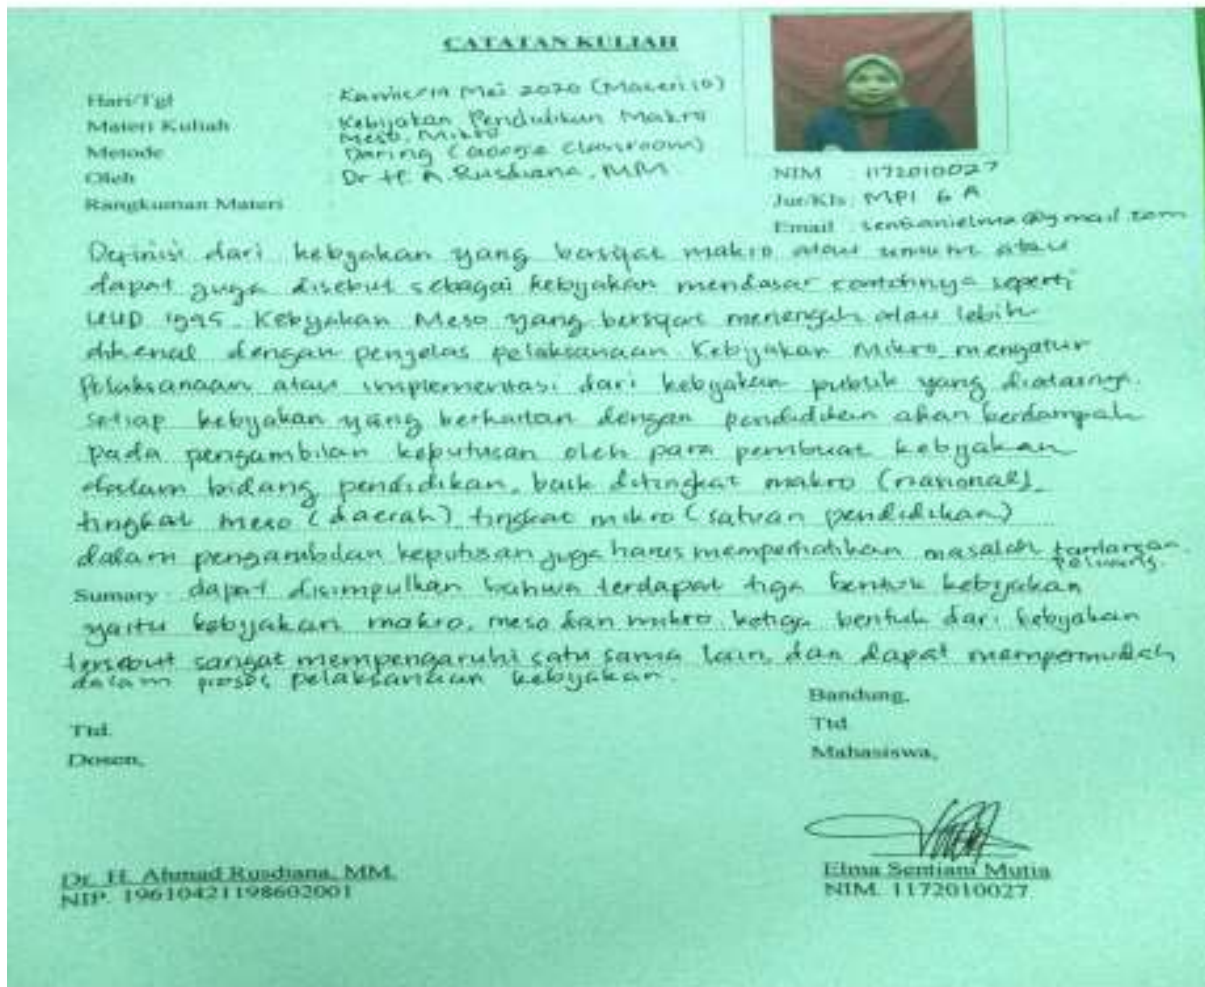 CATATAN KULIAH
Hari/Tgl : Kamis/14 Mei 2020 (Materi 10)
Materi Kuliah : Kebijakan Pendidikan Makro
Meso, Mikro
Metode : Daring (Google Classroom)
Oleh : Dr. H. A. Rusdiana, MM
Rangkuman Materi :
NIM : 1172010027
Jur/Kls : MPI 6 A
Email : sentianielma@gmail.com
Definisi dari kebijakan yang bersifat makro atau umum atau
dapat juga disebut sebagai kebijakan mendasar contohnya seperti
UUD 1945. Kebijakan Meso yang bersifat menengah atau lebih
dikenal dengan penjelas pelaksanaan Kebijakan Mikro mengatur
Pelaksanaan atau implementasi dari kebijakan publik yang diatasnya.
setiap kebijakan yang berkaitan dengan pendidikan akan berdampak
pada pengambilan keputusan oleh para pembuat kebijakan
dalam bidang pendidikan, baik ditingkat makro (nasional)
tingkat meso (daerah) tingkat mikro (satuan pendidikan)
dalam pengambilan keputusan juga harus memperhatikan masalah tantangan
peluang.
Sumary : dapat disimpulkan bahwa terdapat tiga bentuk kebijakan
yaitu kebijakan makro, meso dan mikro ketiga bentuk dari kebijakan
tersebut sangat mempengaruhi satu sama lain, dan dapat mempermudah
dalam proses pelaksanaan kebijakan.
Bandung,
Ttd.
Ttd
Dosen,
Mahasiswa,
Dr. H. Ahmad Rusdiana, MM.
NIP. 196104211986021001
Elma Sentiani Mutia
NIM. 1172010027